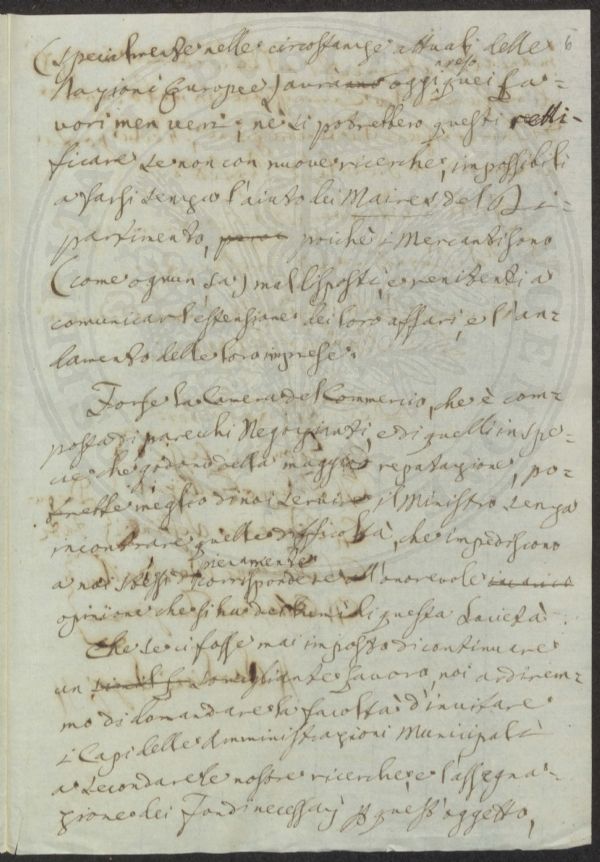 6
(specialmente nelle circostanze attuali delle
Nazioni Europee) avria oggi reso quei la=
vori men veri; nè si potrebbero questi retti=
ficare se non con nuove ricerche, impossibili
a farsi senza l'aiuto dei Maires del Di=
partimento, poichè i Mercanti sono
(come ognun sa) mal disposti, e renitenti a
comunicar l'estensione dei loro affari, e l'an=
damento delle loro imprese.
Forse la Camera del Commercio, che è com=
posta di parecchi Negozianti, e di quelli in spe=
cie che godono della maggior reputazione, po=
trebbe meglio di noi servire il Ministro senza
incontrare quelle difficoltà, che impediscono
a noi stessi di pienamente corrispondere all'onorevole
opinione che si ha dei lumi di questa Società.
Che se ci fosse mai imposto di continuare
un somigliante lavoro, noi ardirem=
mo di domandare la facoltà d'invitare
i Capi delle Amministrazioni Municipali
a secondare le nostre ricerche, e l'assegna=
zione dei fondi necessarj p quest'oggetto,